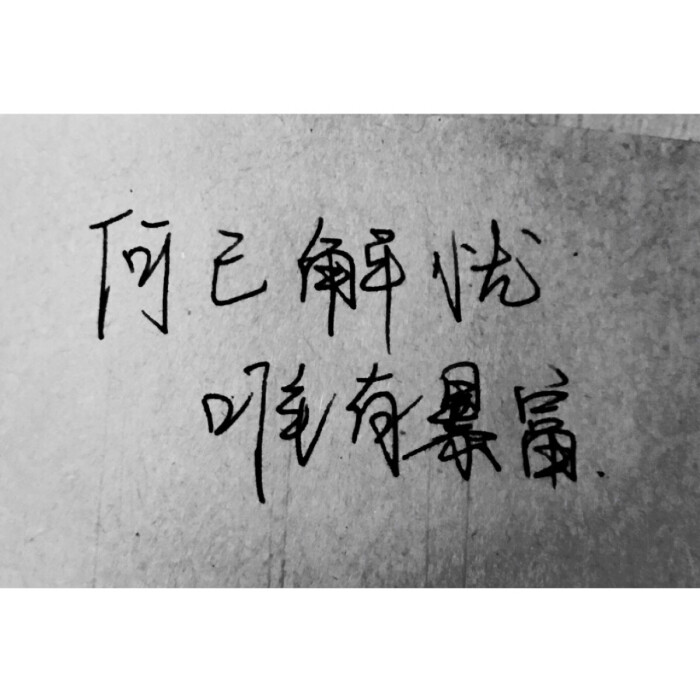 何己解忧
唯有暴富.